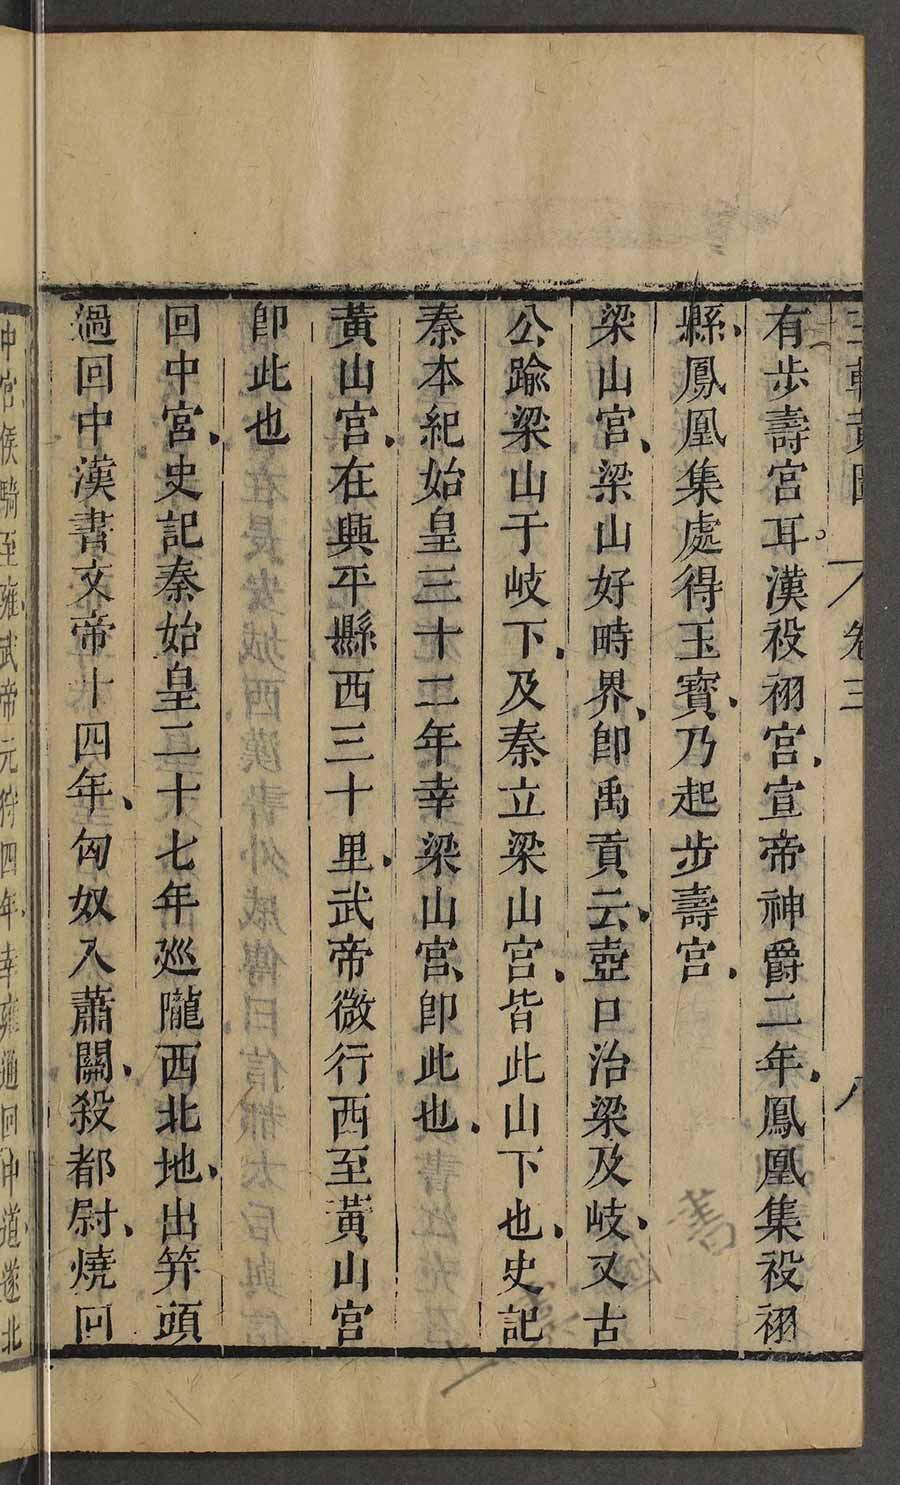 三輔黃圖 卷三 八
有步壽宮耳漢祋祤宮宣帝神爵二年鳳凰集祋祤
縣鳳凰集處得玉寳乃起步壽宮
梁山宮梁山好畤界卽禹貢云壺口治梁及岐又古
公踰梁山于岐下及秦立梁山宮皆此山下也史記
秦本紀始皇三十二年幸梁山宮卽此也
黃山宮在興平縣西三十里武帝微行西至黃山宮
卽此也
回中宮史記秦始皇二十七年廵隴西北地出筓頭
過回中漢書文帝十四年匈奴入蕭關殺都尉燒回
中宮候騎至雍武帝元狩四年幸雍通回中道遂北